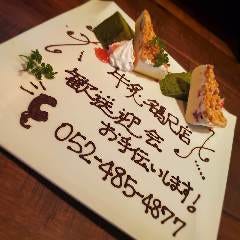 牛兎・鶴沢店
歓送迎会
お手伝いします!
052-485-4877